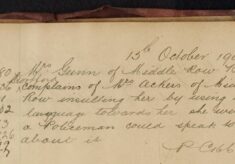 15th October 19
80 Mrs Gunn of Middle Row
complains of Mrs Ackers of
Row insulting her by using
62 language towards her she
a Policeman could speak to
about it
P C